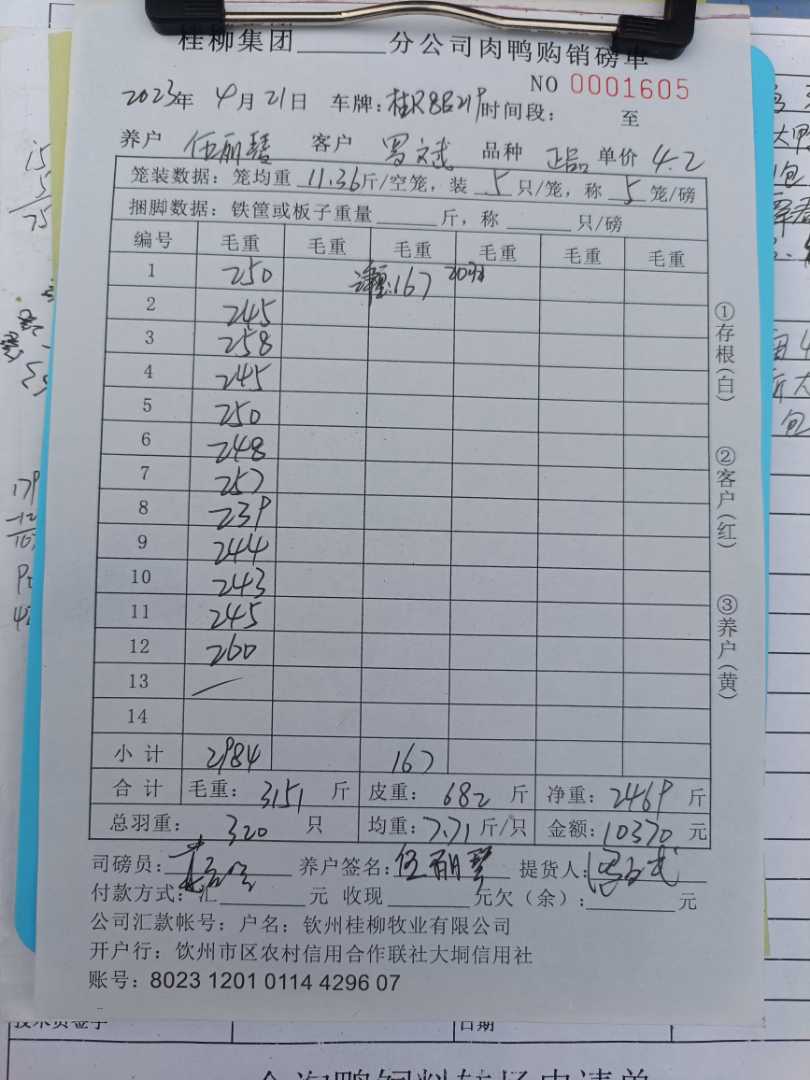 桂柳集团______分公司肉鸭购销磅单
NO 0001605
2023年 4月21日 车牌:桂R8B219时间段: 至
养户 伍丽琴 客户 罗文武 品种 正品 单价 4.2
笼装数据:笼均重 11.36斤/空笼,装 5 只/笼,称 5 笼/磅
捆脚数据:铁筐或板子重量______斤,称______只/磅
编号 毛重 毛重 毛重 毛重 毛重 毛重
1 250 :167 20只
2 245
3 258
4 245
5 250
6 248
7 257
8 239
9 244
10 243
11 245
12 260
13 —
14
小计 2984 167
合计 毛重:3151 斤 皮重:682 斤 净重:2469 斤
总羽重:320 只 均重:7.71斤/只 金额:10370元
司磅员: 养户签名:伍丽琴 提货人:罗文武
付款方式:汇______元 收现______元欠(余):______元
公司汇款帐号:户名:钦州桂柳牧业有限公司
开户行:饮州市区农村信用合作联社大垌信用社
账号:8023 1201 0114 4296 07
①存根(白)
②客户(红)
③养户(黄)
15
5
75
技术员签字 日期